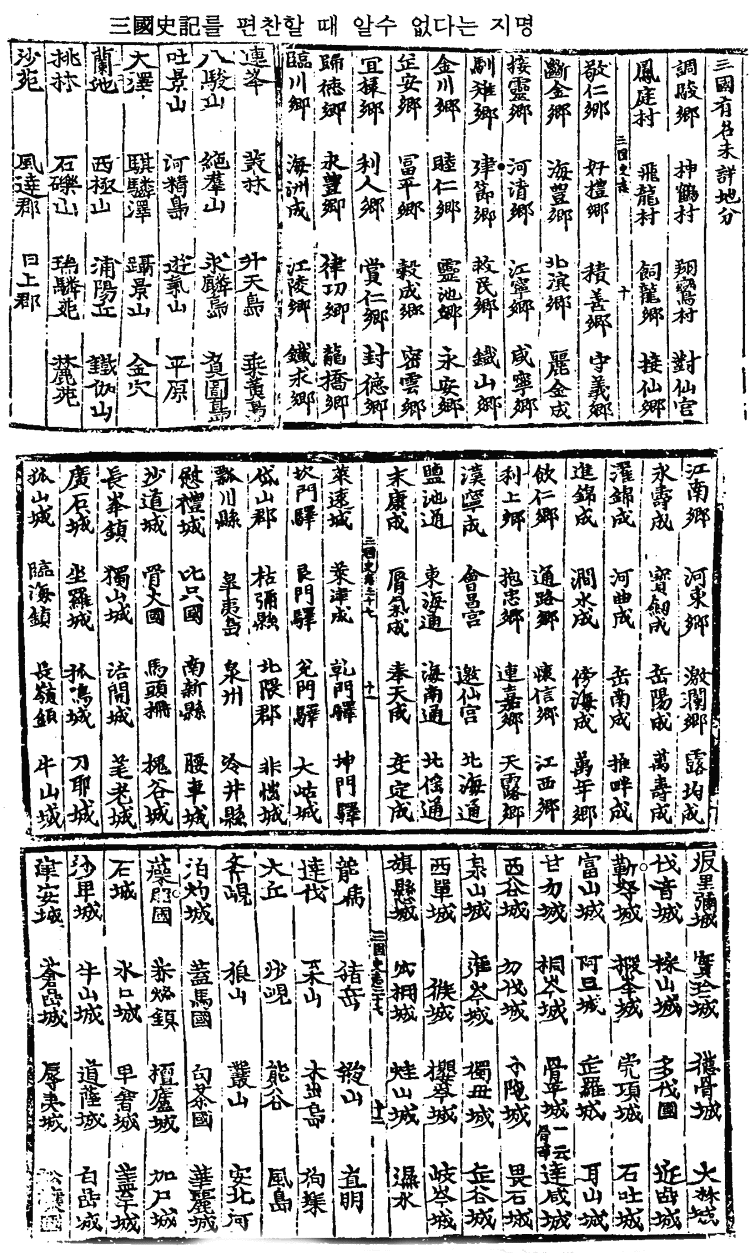 三國史記를 편찬할 때 알수 없다는 지명
三國有名未詳地分
調駿鄉 神鶴村 翔鸞村 對仙宮
鳳庭村 飛龍村 飼龍鄉 接仙鄉
三國史記 十
敬仁鄉 好禮鄉 積善鄉 守義鄉
斷金鄉 海豊鄉 北溟鄉 麗金成
接靈鄉 河清鄉 江寧鄉 咸寧鄉
馴雉鄉 建節鄉 救民鄉 鐵山鄉
金川鄉 睦仁鄉 靈池鄉 永安鄉
武安鄉 富平鄉 穀成鄉 密雲鄉
宜祿鄉 利人鄉 賞仁鄉 封德鄉
歸德鄉 永豊鄉 律功鄉 龍橋鄉
臨川鄉 海洲成 江陵鄉 鐵求鄉
連峯 叢林 升天島 乘黃島
八駿山 絶羣山 求麟島 負圖島
吐景山 河精島 遊氣山 平原
大澤 騏驎澤 躡景山 金穴
蘭池 西極山 蒲陽丘 鐵伽山
桃林 石礫山 瑞驎苑 麓苑
沙苑 風達郡 日上郡
江南鄉 河東鄉 激瀾鄉 露均成
永壽成 寶劔成 岳陽成 萬壽成
濯錦成 河曲成 岳南成 推畔成
進錦成 澗水成 傍海成 萬年鄉
飮仁鄉 通路鄉 懷信鄉 江西鄉
利上鄉 抱忠鄉 連嘉鄉 天露鄉
漢寧成 會昌宮 邀仙宮 北海通
鹽池通 東海通 海南通 北傜通
末康成 脣氣成 奉天成 安定成
三國史卷三十七 十一
萊遠城 萊津成 乾門驛 坤門驛
坎門驛 艮門驛 兌門驛 大岵城
岱山郡 枯彌縣 北隈郡 非惱城
瓢川縣 皐夷島 泉州 冷井縣
慰禮城 比只國 南新縣 腰車城
沙道城 骨火國 馬頭柵 槐谷城
長峯鎭 獨山城 活開城 芼老城
廣石城 坐羅城 狐鳴城 刀耶城
狐山城 臨海鎭 長嶺鎭 牛山城
坂里彌城 實珍城 德骨城 大林城
伐音城 株山城 多伐國 近嵒城
勒弩城 完項城 石吐城
富山城 阿旦城 缶羅城 耳山城
甘勿城 桐岑城 骨平城一云骨爭 達咸城
西谷城 勿伐城 小陁城 畏石城
泉山城 雍岑城 獨母城 缶谷城
西單城 猴城 櫻岑城 岐岑城
旗懸城 穴柵城 蛙山城 濕水
三國史卷三十七 十二
龍馬 猪岳 鈹山 直明
達伐 采山 木出島 狗壤
大丘 沙峴 熊谷 風島
斧峴 狼山 叢山 安北河
泊灼城 蓋馬國 句茶國 華麗城
藻那國 赤烽鎭 檀廬城 加尸城
石城 水口城 卑奢城 蓋牟城
沙卑城 牛山城 道薩城 白嵒城
建安城 蒼嵒城 辱夷城